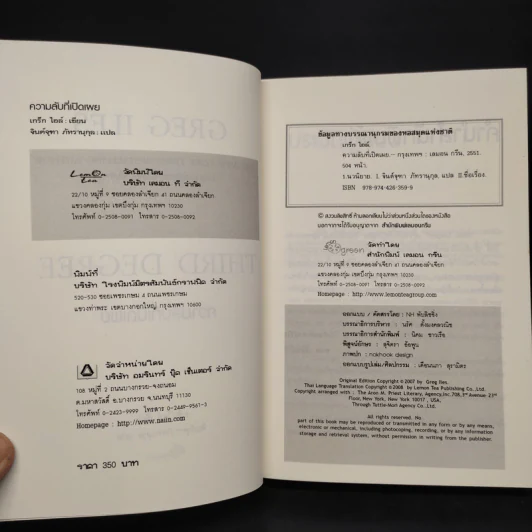 ความลับที่เปิดเผย
เกร็ก ไอลส์ : เขียน
จินต์จุฑา ภัทรานุกุล : แปล
LemOn Tea
จัดพิมพ์โดย
บริษัท เลมอน ที จำกัด
22/10 หมู่ที่ 9 ซอยคลองลำเจียก ถนนคลองลำเจียก
แขวงคลองกุ่ม เขตบึงกุ่ม กรุงเทพฯ 10230
โทรศัพท์ 0-2508-0091 โทรสาร 0-2508-0092
พิมพ์ที่
บริษัท โรงพิมพ์มิตรสัมพันธ์กราบฟิค จำกัด
520-530 ซอยเพชรเกษม 4 ถนนเพชรเกษม
แขวงท่าพระ เขตบางกอกใหญ่ กรุงเทพฯ 10600
จัดจำหน่ายโดย
บริษัท อมรินทร์ บุ๊ค เซ็นเตอร์ จำกัด
108 หมู่ที่ 2 ถนนบางกรวย-จงถนอม
ต.มหาสวัสดิ์ อ.บางกรวย จ.นนทบุรี 11130
โทรศัพท์ 0-2423-9999 โทรสาร 0-2449-9561-3
Homepage : http://www.naiin.com
ราคา 350 บาท
GREG ILES
THIRD DEGREE
ข้อมูลทางบรรณานุกรมของหอสมุดแห่งชาติ
เกร็ก ไอลส์.
ความลับที่เปิดเผย.-- กรุงเทพฯ : เลมอน กรีน, 2551.
504 หน้า.
1.นวนิยาย. I. จินต์จุฑา ภัทรานุกุล, แปล II.ชื่อเรื่อง.
ISBN 978-974-426-359-9
© สงวนลิขสิทธิ์ ห้ามลอกเลียนไม่ว่าส่วนหนึ่งส่วนใดของหนังสือ
นอกจากจะได้รับอนุญาตจาก สำนักพิมพ์เลมอนกรีน
green
จัดทำโดย
สำนักพิมพ์ เลมอน กรีน
22/10 หมู่ที่ 9 ซอยคลองลำเจียก ถนนคลองลำเจียก
แขวงคลองกุ่ม เขตบึงกุ่ม กรุงเทพฯ 10230
โทรศัพท์ 0-2508-0091 โทรสาร 0-2508-0092
Homepage : http://www.lemonteagroup.com
ออกแบบ / คัดสรรโดย : NH พับลิชชิ่ง
บรรณาธิการบริหาร : นรัศ ตั้งมงคลวณิช
บรรณาธิการสำนักพิมพ์ : นิคม ชาวเรือ
พิสูจน์อักษร : สุจิตรา
ภาพปก : nokhook design
ออกแบบรูปเล่ม/ศิลปกรรม : เดือนนภา สุรามิตร
Original Edition Copyright © 2007 by Greg Iles.
Thai Language Translation Copyright © 2008 by Lemon Tea Publishing Co. Ltd.
Copyright arranged with : The Aron M. Priest Literary, Agency,Inc.708,3rd Avenue, 23rd
Floor, New York, New York 10017, USA,
Through Tuttle-Mori Agency Co.,Ltd.
All rights reserved. No
part of this book may be reproduced or transmitted in any form or by any means,
electronic or mechanical, including photocopying, recording, or by any information
storage and retrieval system, without permission in writing from the publisher.